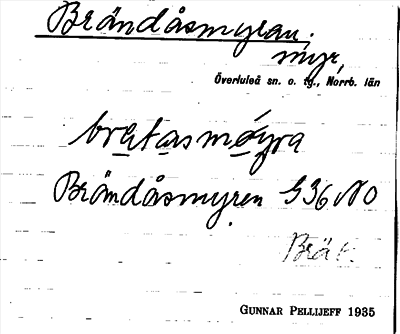 Brändåsmyran.
myr,
Överluleå sn. o. tg., Norrb. län
bratasmöyra
Brändåsmyren S36 NO
GUNNAR PELLIJEFF 1935